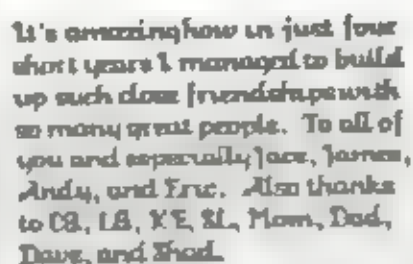 It's amazing how in just four
short years I managed to build
up such close friendships with
so many great people. To all of
you and especially Jace, James,
Andy, and Eric. Also thanks
to CB, LB, KE, SL, Mom, Dad,
Dave, and Shad.